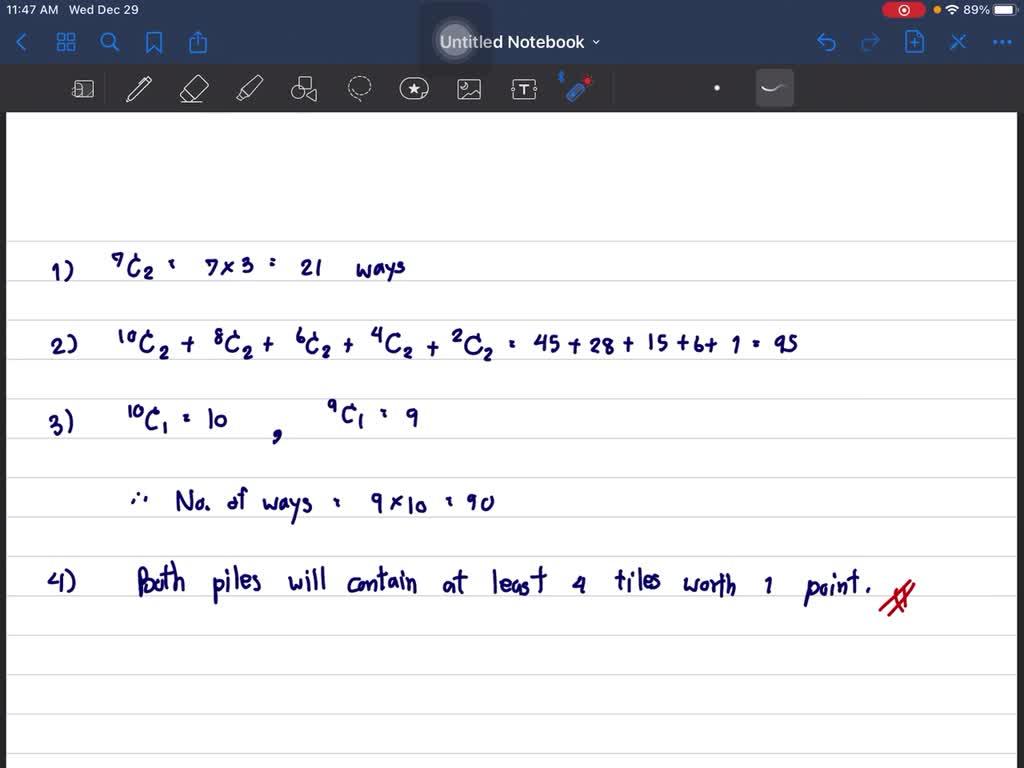 11:47 AM Wed Dec 29
89%
Untitled Notebook
1) ⁷C₂ = 7 × 3 = 21 ways
2) ¹⁰C₂ + ⁸C₂ + ⁶C₂ + ⁴C₂ + ²C₂ = 45 + 28 + 15 + 6 + 1 = 95
3) ¹⁰C₁ = 10 , ⁹C₁ = 9
∴ No. of ways = 9 × 10 = 90
4) Both piles will contain at least 4 tiles worth 1 point.